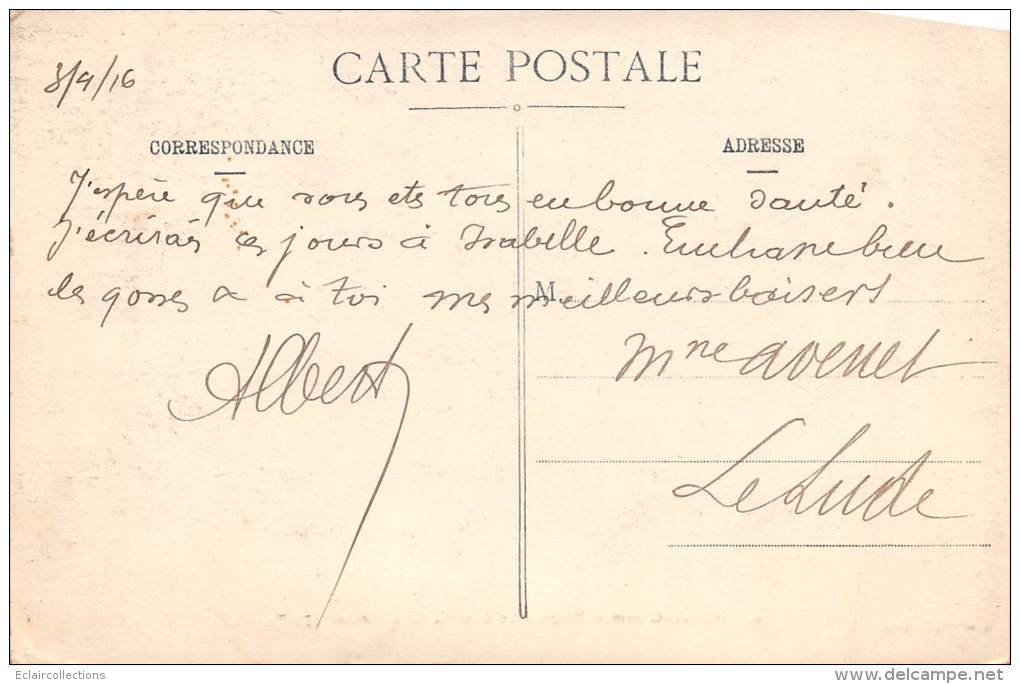 3/4/16
CARTE POSTALE
CORRESPONDANCE
ADRESSE
J'espère que vous ets tous en bonne santé.
J'écrirais ces jours à Isabelle. Embrasse bien
les gosses & à toi mes meilleurs baisers
M
Albert
Mme Avenet
Le Lude
Eclaircollections
www.delcampe.net